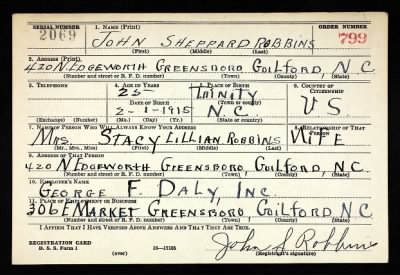 SERIAL NUMBER 1. NAME (Print) ORDER NUMBER
2069 JOHN SHEPPARD ROBBINS 799
(First) (Middle) (Last)
2. ADDRESS (Print)
420 N. EDGEWORTH GREENSBORO GUILFORD N.C.
(Number and street or R. F. D. number) (Town) (County) (State)
3. TELEPHONE 4. AGE IN YEARS 5. PLACE OF BIRTH 6. COUNTRY OF CITIZENSHIP
25 TRINITY
DATE OF BIRTH (Town or county) U.S.
2-1-1915 N.C.
(Exchange) (Number) (Mo.) (Day) (Yr.) (State or country)
7. NAME OF PERSON WHO WILL ALWAYS KNOW YOUR ADDRESS 8. RELATIONSHIP OF THAT PERSON
MRS. STACY LILLIAN ROBBINS WIFE
(Mr., Mrs., Miss) (First) (Middle) (Last)
9. ADDRESS OF THAT PERSON
420 N. EDGEWORTH GREENSBORO GUILFORD N.C.
(Number and street or R. F. D. number) (Town) (County) (State)
10. EMPLOYER'S NAME
GEORGE F. DALY, INC
11. PLACE OF EMPLOYMENT OR BUSINESS
306 E MARKET GREENSBORO GUILFORD N.C.
(Number and street or R. F. D. number) (Town) (County) (State)
I AFFIRM THAT I HAVE VERIFIED ABOVE ANSWERS AND THAT THEY ARE TRUE.
REGISTRATION CARD
D. S. S. Form 1 (over) 16-17105
John S Robbins
(Registrant's signature)